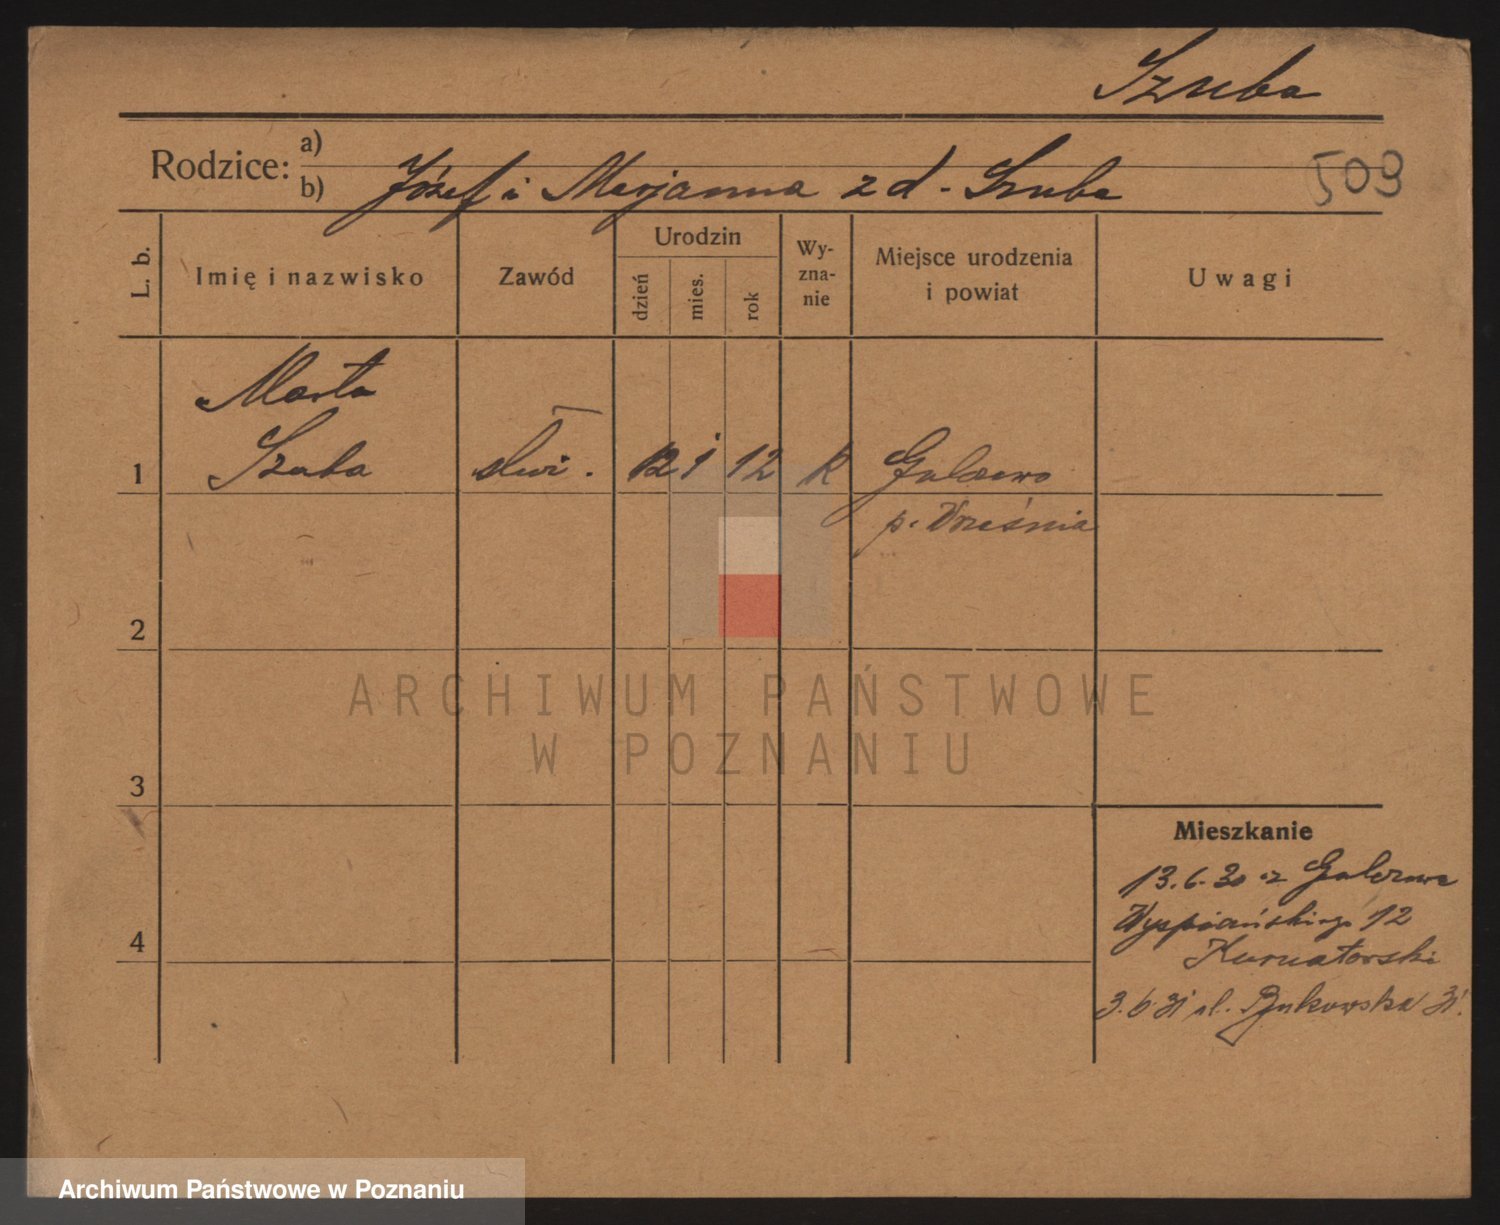 Szuba
Rodzice:
a)
b) Józef i Marjanna z d - Szuba
509
L. b.
Imię i nazwisko
Zawód
Urodzin
dzień
mies.
rok
Wy-
zna-
nie
Miejsce urodzenia
i powiat
Uwagi
Marta
1 Szuba słui. 12 1 12 k Gulczewo
p. Września
2
ARCHIWUM PAŃSTWOWE
W POZNANIU
3
Mieszkanie
13.6.30 z Gulczewa
4 Wyspiańskiego 12
Kurnatowski
3.6.31 ul. Bukowska 31.
Archiwum Państwowe w Poznaniu